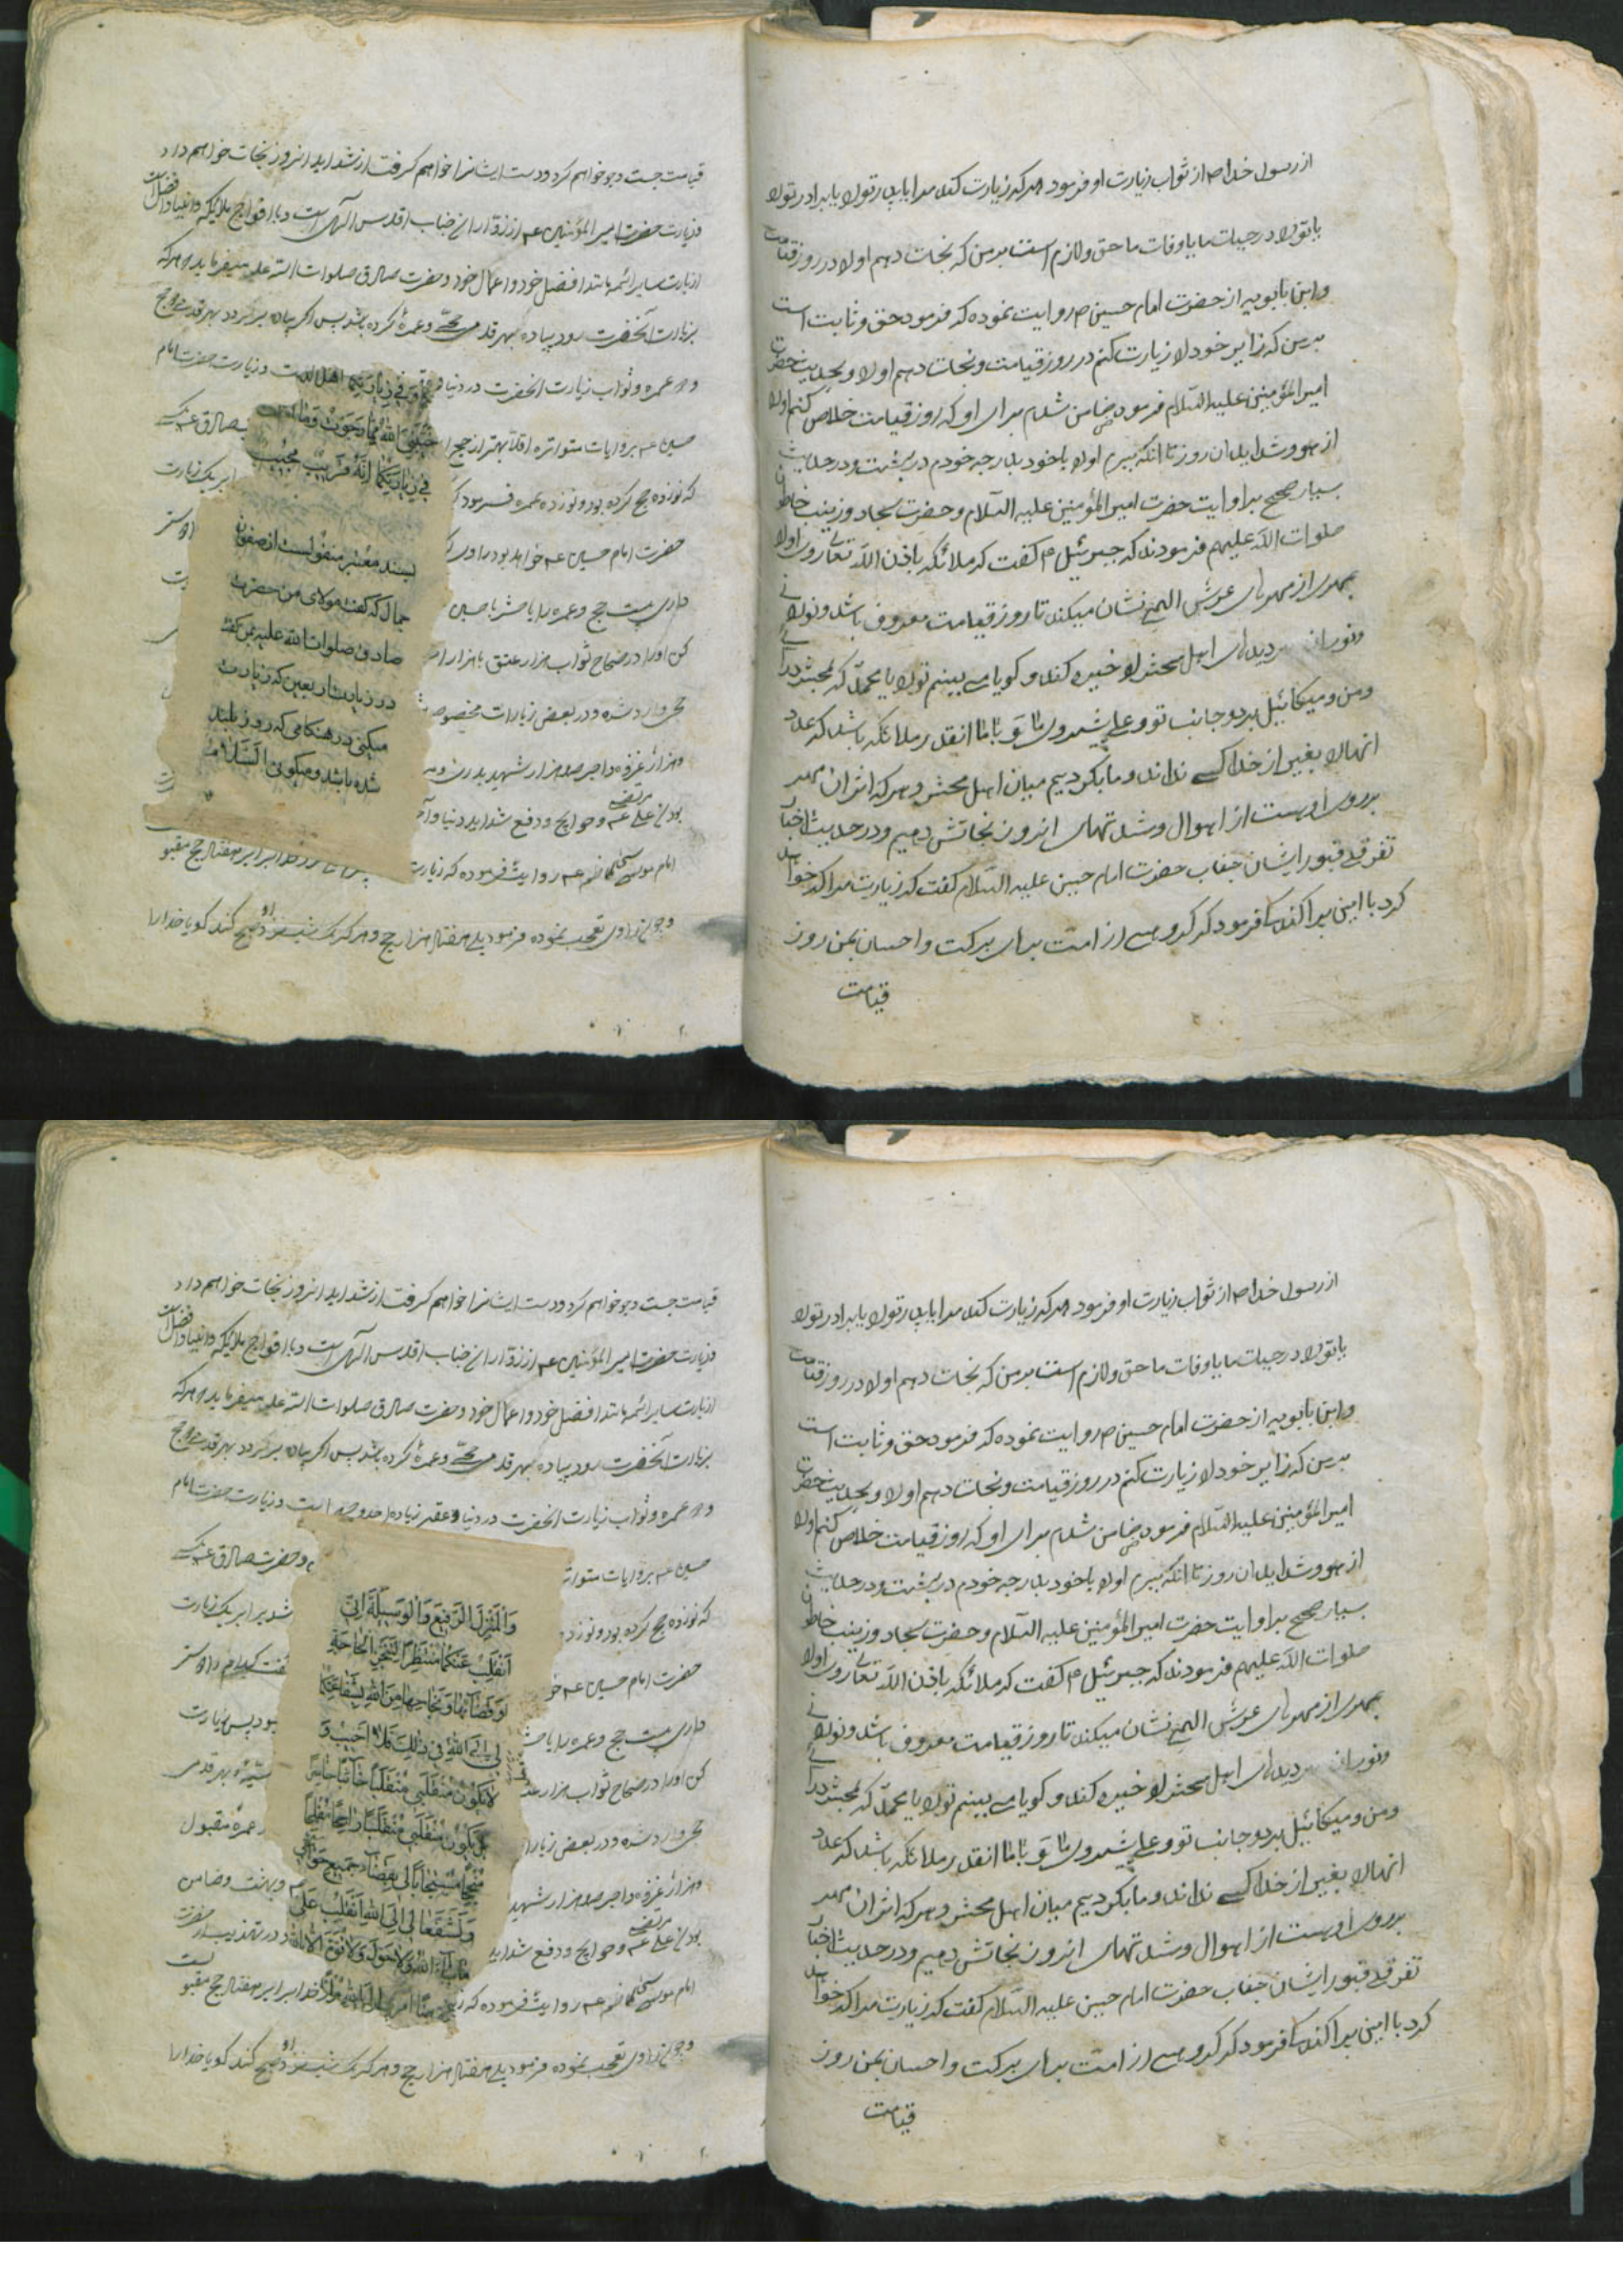 از رسول خدا ص از ثواب زیارت او فرمود هر که زیارت کند مرا یا پدر تو را یا برادر تو را
یا تو را در حیات ما یا وفات ما حق و لازم است بر من که نجات دهم او را در روز قیامت
و ابن بابویه از حضرت امام حسین ص روایت نموده که فرمود حق و ثابت است
بر من که زایر خود را زیارت کنم در روز قیامت و نجات دهم او را و بحدیث حضرت
امیر المؤمنین علیه السلام فرمود ضامن شدم برای او که روز قیامت خلاص کنم او را
از هول و شداید آن روز تا آنکه ببرم او را با خود بدرجه خودم در بهشت و در حدیث
بسیار صحیح بروایت حضرت امیر المؤمنین علیه السلام و حضرت سجاد و زینب خاتون
صلوات الله علیهم فرمودند که جبرئیل ع گفت که ملائکه باذن الله تعالی روی او را
بمهری از مهرهای عرش الهی نشان میکند تا روز قیامت معروف باشد و نور
دیدهای اهل محشر را خیره کند و گویا می بینم تو را یا محمد که بمحشر
و من و میکائیل بر دو جانب تو و علی پیش روی ما و با ما انقدر ملائکه باشد که عدد
آنها را بغیر از خدا کسی نداند و ما بگردیم میان اهل محشر و هر که اثر آن مهر
بر روی اوست از اهوال و شدتهای آنروز نجاتش دهیم و در حدیث اخبار
تفرق قبور ایشان جناب حضرت امام حسین علیه السلام گفت که زیارت مرا که خواهد
کرد با این پراکندگی فرمود که گروهی از امت برای برکت و احسان بمن روز
قیامت
قیامت جست و جو خواهم کرد و دست ایشانرا خواهم گرفت از شداید آنروز نجات خواهم داد
و زیارت حضرت امیر المؤمنین ع از زواران جناب اقدس الهی است و با افواج ملایکه و انبیا و افضل است
از زیارت سایر ائمه مانند افضل خود و اعمال خود و حضرت صادق صلوات الله علیه میفرماید هر که
بزیارت آنحضرت رود پیاده بهر قدمی حجّی و عمرهٔ کرده باشد پس اگر پیاده برگردد بهر قدمی دو حج
و دو عمره و ثواب زیارت آنحضرت در دنیا و است و زیارت حضرت امام
حسین ع بروایات متواتره اقلا بهتر از حج صادق ع
که نوزده حج کرده بود و نوزده عمره فرمود برابر یک زیارت
حضرت امام حسین ع خواهد بود و راوی
داری بیست حج و عمره را یا حشر با حسین
کن او را در صحاح ثواب هزار عتق با هزار
حج وارد شده و در بعض زیارات مخصوصه
و هزار غزوه و اجر صد هزار شهید بدر
بودن علی مرتضی ع و حوایج و دفع شداید دنیا و
امام موسی کاظم ع روایت فرموده که زیارت خدا برابر هفتاد حج مقبول
و چون راوی تعجب نموده فرمود بلی هفتاد هزار حج و هر که یک شب نزد او صبح کند گویا خدا را
فی زیارتکما اهل
خیبنی الله مما رجوت وما
فی زیارتکما انه قریب مجیب
بسند معتبر منقولست از صفوان
جمال که گفت مولای من حضرت
صادق صلوات الله علیه بمن گفت
در زیارت اربعین که زیارت
میکنی در هنگامی که روز بلند
شده باشد و میگوئی السلام
از رسول خدا ص از ثواب زیارت او فرمود هر که زیارت کند مرا یا پدر تو را یا برادر تو را
یا تو را در حیات ما یا وفات ما حق و لازم است بر من که نجات دهم او را در روز قیامت
و ابن بابویه از حضرت امام حسین ص روایت نموده که فرمود حق و ثابت است
بر من که زایر خود را زیارت کنم در روز قیامت و نجات دهم او را و بحدیث حضرت
امیر المؤمنین علیه السلام فرمود ضامن شدم برای او که روز قیامت خلاص کنم او را
از هول و شداید آن روز تا آنکه ببرم او را با خود بدرجه خودم در بهشت و در حدیث
بسیار صحیح بروایت حضرت امیر المؤمنین علیه السلام و حضرت سجاد و زینب خاتون
صلوات الله علیهم فرمودند که جبرئیل ع گفت که ملائکه باذن الله تعالی روی او را
بمهری از مهرهای عرش الهی نشان میکند تا روز قیامت معروف باشد و نور
دیدهای اهل محشر را خیره کند و گویا می بینم تو را یا محمد که بمحشر
و من و میکائیل بر دو جانب تو و علی پیش روی ما و با ما انقدر ملائکه باشد که عدد
آنها را بغیر از خدا کسی نداند و ما بگردیم میان اهل محشر و هر که اثر آن مهر
بر روی اوست از اهوال و شدتهای آنروز نجاتش دهیم و در حدیث اخبار
تفرق قبور ایشان جناب حضرت امام حسین علیه السلام گفت که زیارت مرا که خواهد
کرد با این پراکندگی فرمود که گروهی از امت برای برکت و احسان بمن روز
قیامت
قیامت جست و جو خواهم کرد و دست ایشانرا خواهم گرفت از شداید آنروز نجات خواهم داد
و زیارت حضرت امیر المؤمنین ع از زواران جناب اقدس الهی است و با افواج ملایکه و انبیا و افضل است
از زیارت سایر ائمه مانند افضل خود و اعمال خود و حضرت صادق صلوات الله علیه میفرماید هر که
بزیارت آنحضرت رود پیاده بهر قدمی حجّی و عمرهٔ کرده باشد پس اگر پیاده برگردد بهر قدمی دو حج
و دو عمره و ثواب زیارت آنحضرت در دنیا و عقبی زیاده از حد و حصر است و زیارت حضرت امام
حسین ع بروایات متواتره و حضرت صادق ع
که نوزده حج کرده بود و نوزده شد برابر یک زیارت
حضرت امام حسین ع گفت کدام
داری بیست حج و عمره را یا حشر بود پس زیارت
کن او را در صحاح ثواب هزار بهر قدمی
حج وارد شده و در بعض زیارات عمره مقبول
و هزار غزوه و اجر صد هزار شهید و بهشت و ضامن
بودن علی مرتضی ع و حوایج و دفع شداید در تهذیب از حضرت
امام موسی کاظم ع روایت فرموده که خدا برابر هفتاد حج مقبول است
و چون راوی تعجب نموده فرمود بلی هفتاد هزار حج و هر که یک شب نزد او صبح کند گویا خدا را
وَالْمَنْزِلَ الرَّفیعَ وَالْوَسیلَةَ اِنّی
اَنْقَلِبُ عَنْکُما مُنْتَظِراً لِتَنَجُّزِ الْحاجَةِ
وَقَضآئِها وَنَجاحِها مِنَ اللهِ بِشَفاعَتِکُما
لی اِلَی اللهِ فی ذلِکَ فَلا اَخیبُ وَ
لا یَکُونُ مُنْقَلَبی مُنْقَلَباً خآئِباً خاسِراً
بَلْ یَکُونُ مُنْقَلَبی مُنْقَلَباً راجِحاً مُفْلِحاً
مُنْجِحاً مُسْتَجاباً لی بِقَضآءِ جَمیعِ حَوآئِجی
وَتَشَفَّعا لی اِلَی اللهِ اَنْقَلِبُ عَلی
ما شآءَ اللهُ وَلا حَوْلَ وَلا قُوَّةَ اِلّا بِاللهِ